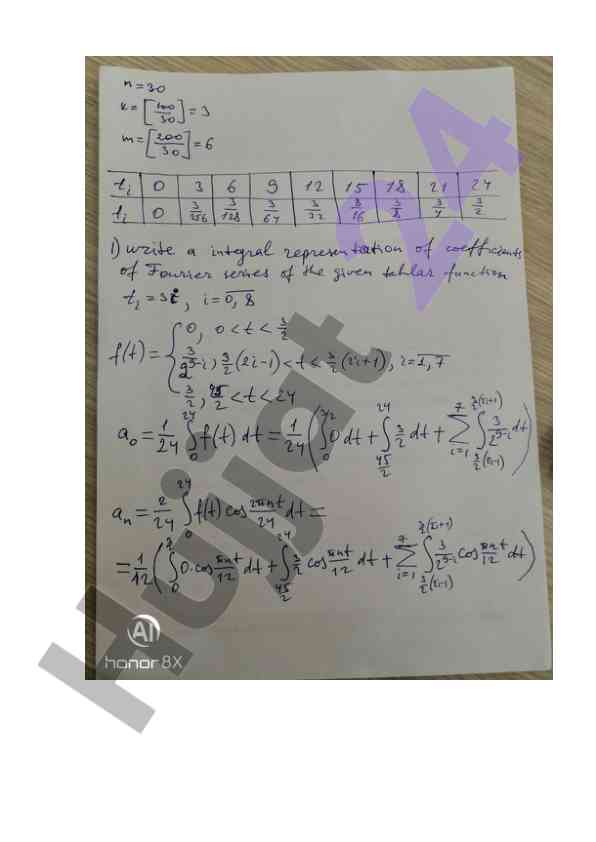 n=30
k=[100/30]=3
m=[200/30]=6
t_i 0 3 6 9 12 15 18 21 24
t_i 0 3/256 3/128 3/64 3/32 3/16 3/8 3/4 3/2
1) write a integral representation of coefficients
of Fourier series of the given tablar function
t_i = 3i, i = \overline{0, 8}
f(t) = { 0, 0 < t < 3/2
3/2^{9-i}, 3/2(2i-1) < t < 3/2(2i+1), i = \overline{1, 7}
3/2, 45/2 < t < 24
a_0 = 1/24 ∫_0^{24} f(t) dt = 1/24 ( ∫_0^{3/2} 0 dt + ∫_{45/2}^{24} 3/2 dt + ∑_{i=1}^{7} ∫_{3/2(2i-1)}^{3/2(2i+1)} 3/2^{9-i} dt )
a_n = 2/24 ∫_0^{24} f(t) cos 2πnt/24 dt =
= 1/12 ( ∫_0^{3/2} 0·cos πnt/12 dt + ∫_{45/2}^{24} 3/2 cos πnt/12 dt + ∑_{i=1}^{7} ∫_{3/2(2i-1)}^{3/2(2i+1)} 3/2^{9-i} cos πnt/12 dt )
AI
honor 8X
Hujjat 24